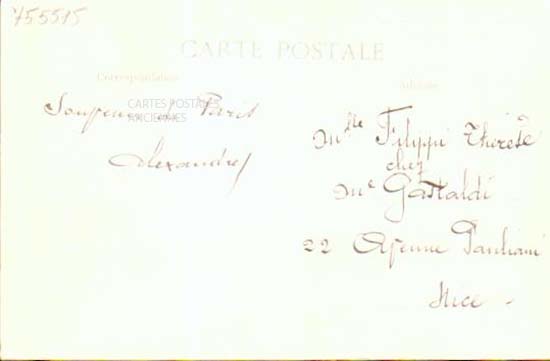 755515
CARTE POSTALE
Correspondance
Adresse
CARTES POSTALES
ANCIENNES
Souvenir de Paris
Alexandre
Mlle Filippi Thérèse
chez
Me Gastaldi
22 Avenue Pauliani
Nice